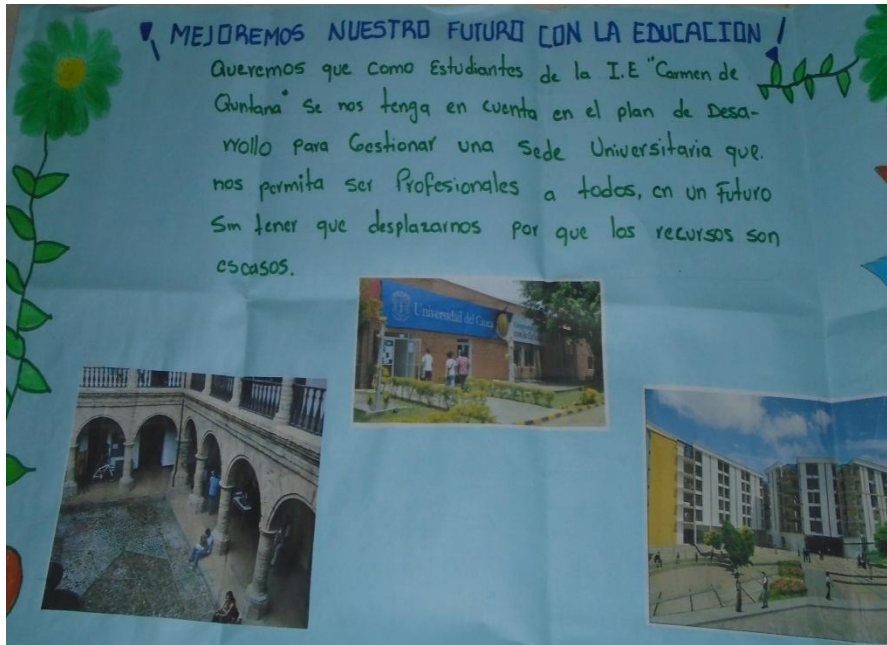 ¡ MEJOREMOS NUESTRO FUTURO CON LA EDUCACION !
Queremos que como Estudiantes de la I.E "Carmen de
Quntana" se nos tenga en cuenta en el plan de Desa-
rrollo para Gestionar una Sede Universitaria que.
nos permita ser Profesionales a todos, en un Futuro
Sin tener que desplazarnos por que los recursos son
escasos.
Universidad del Cauca